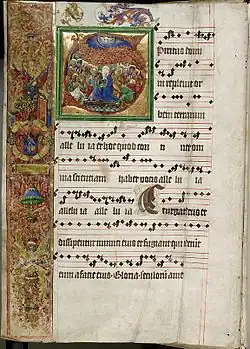 Spiritus domi
ni repleuit or
bem terrarum
alle lu ia et hoc quod con ti net om
nia scientiam habet vocis alle lu ia
alleluia alle lu ia Exurgat deus et
dissipentur inimici eius et fugiant qui oderunt
eum a facie eius Gloria seculorum amen